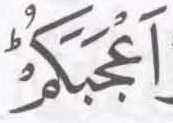 اَعْجَبَكُمْ ؕ